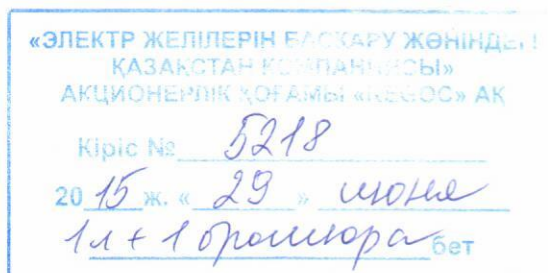 «ЭЛЕКТР ЖЕЛІЛЕРІН БАСҚАРУ ЖӨНІНДЕГІ
ҚАЗАҚСТАН КОМПАНИЯСЫ»
АКЦИОНЕРЛІК ҚОҒАМЫ «KEGOC» АҚ
Кіріс № 5218
20 15 ж. « 29 » июня
1 л + 1 брошюра бет